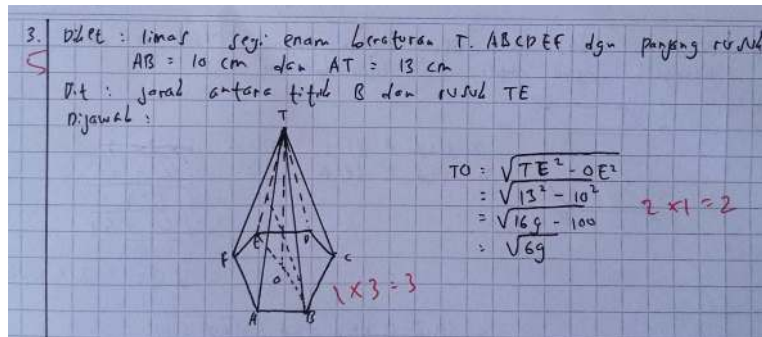 3. Diket : limas segi enam beraturan T. ABCDEF dgn panjang rusuk
5
AB = 10 cm dan AT = 13 cm
Dit : jarak antara titik B dan rusuk TE
Dijawab :
T
TO = √TE² - OE²
= √13² - 10²
= √169 - 100
= √69
2 × 1 = 2
E D
F C
O
1 × 3 = 3
A B